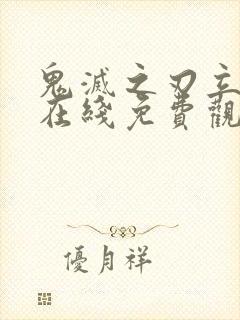 鬼滅之刃立
在綫免費觀
優月祥